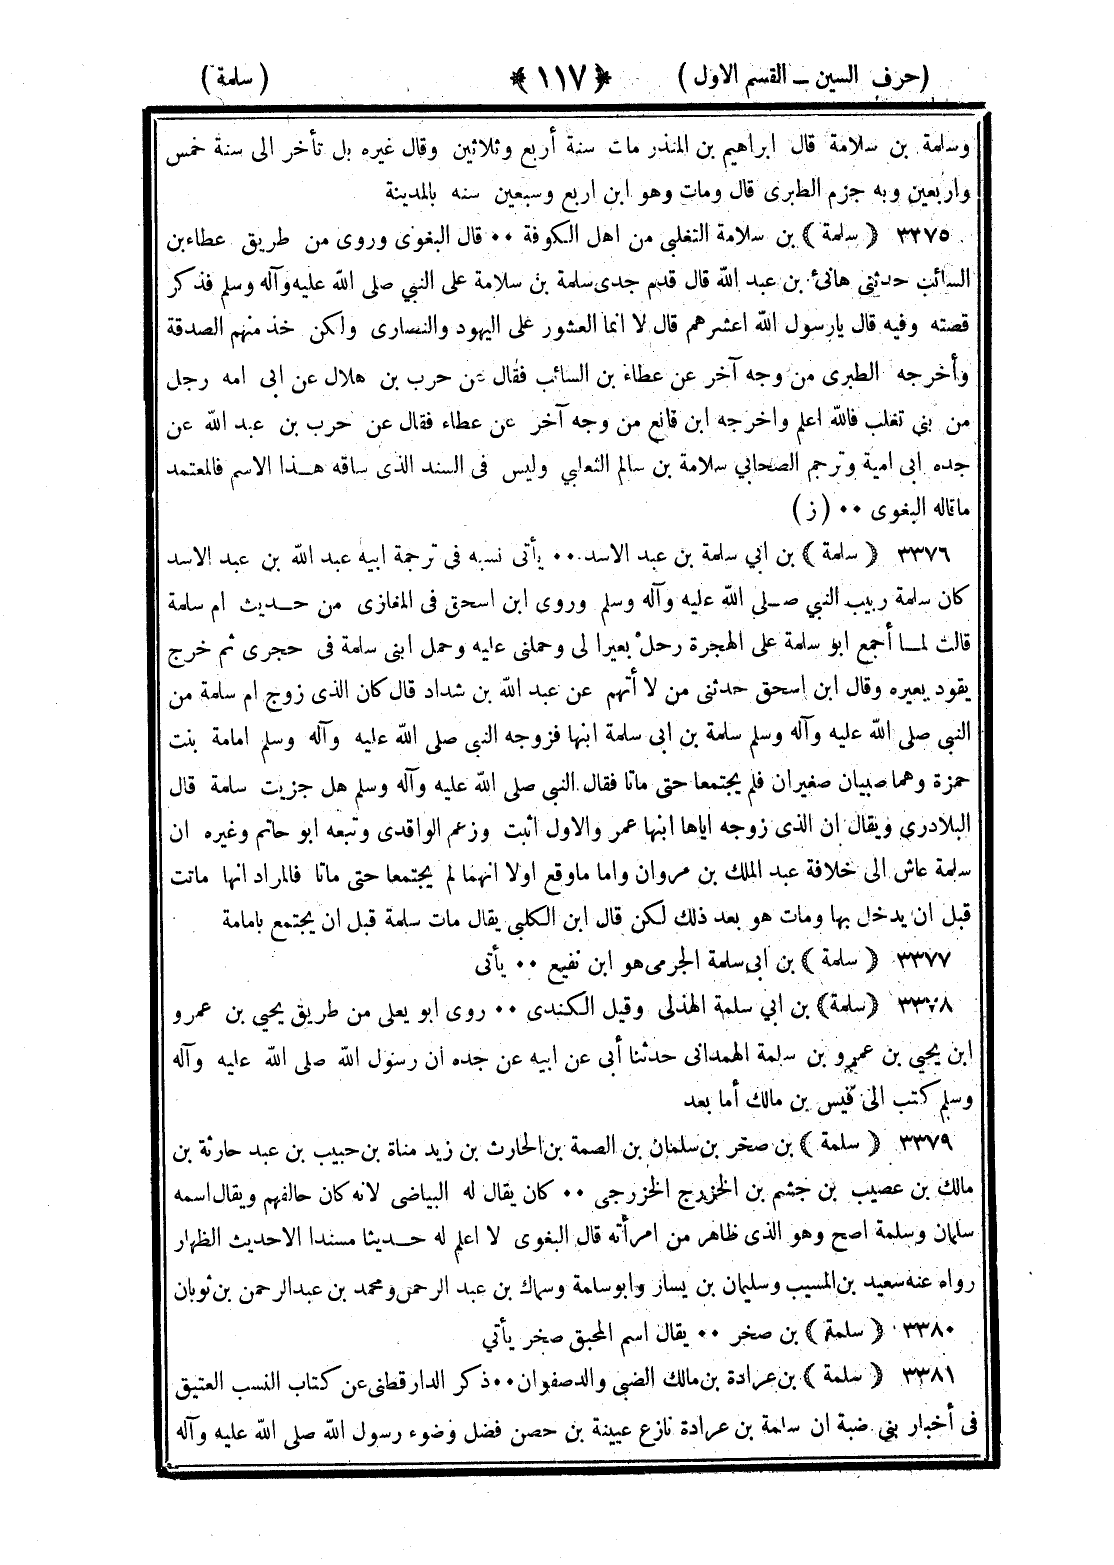 (حرف السين ــ القسم الاول) ﴿ ١١٧ ﴾ (سلمة)
وسلمة بن سلامة قال ابراهيم بن المنذر مات سنة أربع وثلاثين وقال غيره بل تأخر الى سنة خمس
واربعين وبه جزم الطبرى قال ومات وهو ابن اربع وسبعين سنه بالمدينة
٣٣٧٥ ﴿ سلمة ﴾ بن سلامة التغلبي من اهل الكوفة ٠٠ قال البغوى وروى من طريق عطاء بن
السائب حدثنى هانئ بن عبد الله قال قدم جدى سلمة بن سلامة على النبي صلى الله عليه وآله وسلم فذكر
قصته وفيه قال يا رسول الله اعشرهم قال لا انما العشور على اليهود والنصارى ولكن خذ منهم الصدقة
وأخرجه الطبرى من وجه آخر عن عطاء بن السائب فقال عن حرب بن هلال عن ابى امه رجل
من بني تغلب فالله اعلم واخرجه ابن قانع من وجه آخر عن عطاء فقال عن حرب بن عبد الله عن
جده ابى امية وترجم الصحابي سلامة بن سالم الثعلبي وليس فى السند الذى ساقه هـذا الاسم فالمعتمد
ماقاله البغوى ٠٠ (ز)
٣٣٧٦ ﴿ سلمة ﴾ بن ابي سلمة بن عبد الاسد ٠٠ يأتى نسبه فى ترجمة ابيه عبد الله بن عبد الاسد
كان سلمة ربيب النبي صـلى الله عليه وآله وسلم وروى ابن اسحق فى المغازى من حـديث ام سلمة
قالت لمـا أجمع ابو سلمة على الهجرة رحل بعيرا لى وحملنى عليه وحمل ابنى سلمة فى حجرى ثم خرج
يقود بعيره وقال ابن اسحق حدثنى من لا أتهم عن عبد الله بن شداد قال كان الذى زوج ام سلمة من
النبى صلى الله عليه وآله وسلم سلمة بن ابى سلمة ابنها فزوجه النبى صلى الله عليه وآله وسلم امامة بنت
حمزة وهما صبيان صغيران فلم يجتمعا حتى ماتا فقال النبى صلى الله عليه وآله وسلم هل جزيت سلمة قال
البلاذري ويقال ان الذى زوجه اياها ابنها عمر والاول اثبت وزعم الواقدى وتبعه ابو حاتم وغيره ان
سلمة عاش الى خلافة عبد الملك بن مروان واما ماوقع اولا انهما لم يجتمعا حتى ماتا فالمراد انها ماتت
قبل ان يدخل بها ومات هو بعد ذلك لكن قال ابن الكلبي يقال مات سلمة قبل ان يجتمع بامامة
٣٣٧٧ ﴿ سلمة ﴾ بن ابى سلمة الجرمى هو ابن نفيع ٠٠ يأتى
٣٣٧٨ ﴿سلمة﴾ بن ابي سلمة الهذلى وقيل الكندى ٠٠ روى ابو يعلى من طريق يحيى بن عمرو
ابن يحيي بن عمرو بن سلمة الهمدانى حدثنا أبى عن ابيه عن جده ان رسول الله صلى الله عليه وآله
وسلم كتب الى قيس بن مالك أما بعد
٣٣٧٩ ﴿ سلمة ﴾ بن صخر بن سلمان بن الصمة بن الحارث بن زيد مناة بن حبيب بن عبد حارثة بن
مالك بن عصيب بن جشم بن الخزرج الخزرجى ٠٠ كان يقال له البياضى لانه كان حالفهم ويقال اسمه
سلمان وسلمة اصح وهو الذى ظاهر من امرأته قال البغوى لا اعلم له حـديثا مسندا الاحديث الظهار
رواه عنه سعيد بن المسيب وسليمان بن يسار وابو سلمة وسماك بن عبد الرحمن ومحمد بن عبدالرحمن بن ثوبان
٣٣٨٠ ﴿ سلمة ﴾ بن صخر ٠٠ يقال اسم المحبق صخر يأتي
٣٣٨١ ﴿ سلمة ﴾ بن عرادة بن مالك الضبي والد صفوان ٠٠ ذكر الدارقطنى عن كتاب النسب العتيق
فى أخبار بني ضبة ان سلمة بن عرادة نازع عيينة بن حصن فضل وضوء رسول الله صلى الله عليه وآله